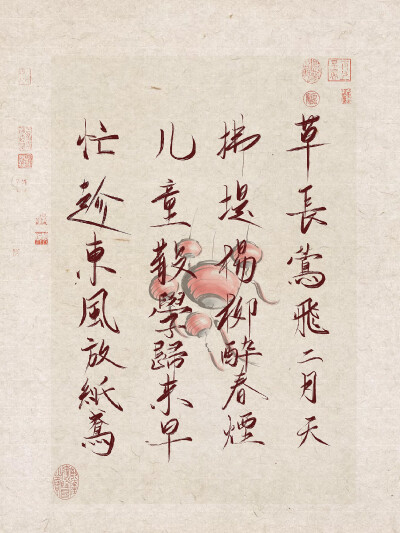 草長鶯飛二月天
拂堤楊柳醉春煙
儿童散學歸来早
忙趁東風放紙鳶